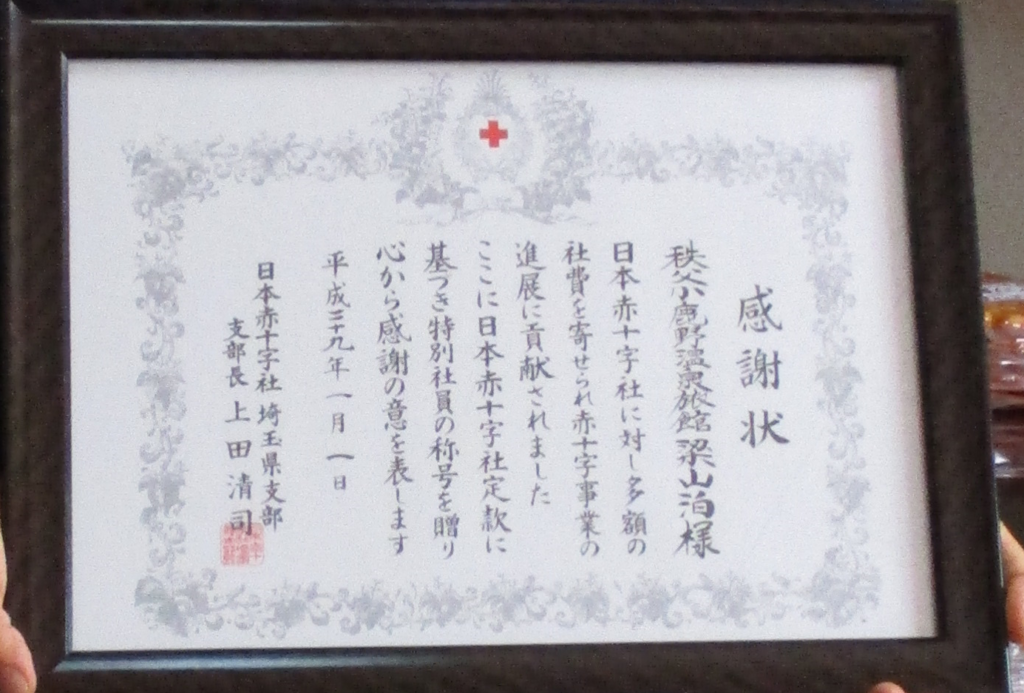 感謝状
秩父小鹿野温泉旅館 梁山泊様
日本赤十字社に対し多額の
社費を寄せられ赤十字事業の
進展に貢献されました
ここに日本赤十字社定款に
基づき特別社員の称号を贈り
心から感謝の意を表します
平成二十九年一月一日
日本赤十字社 埼玉県支部
支部長 上田清司